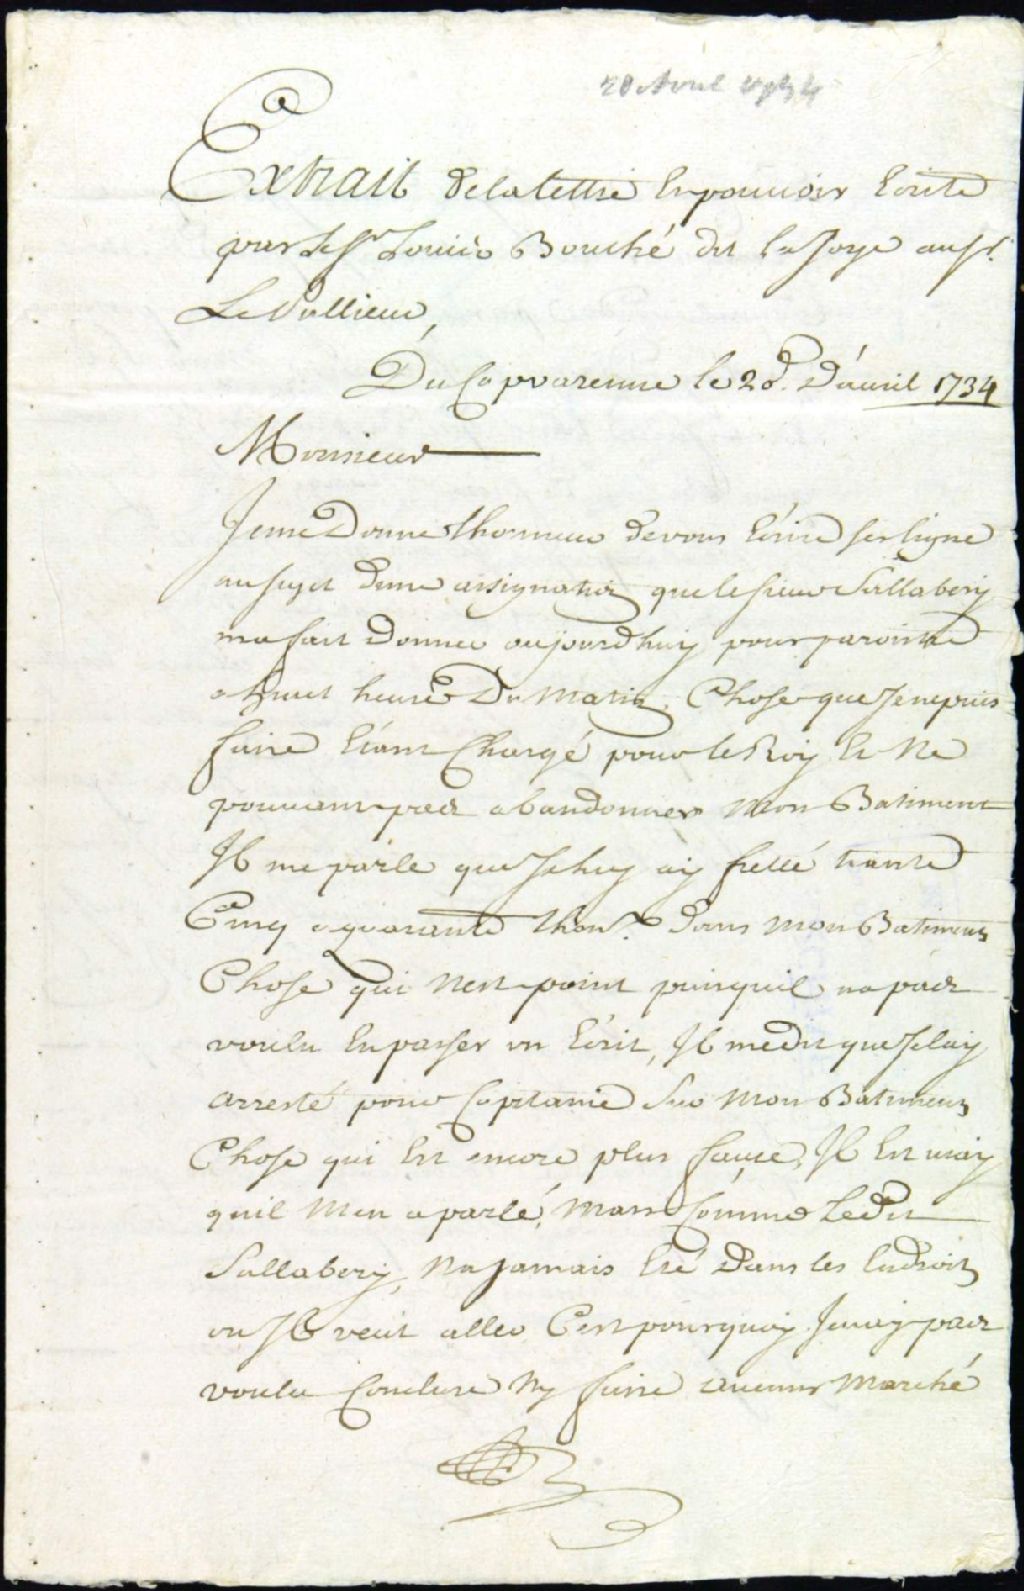 28 Avril 1734
Extrait de la lettre En pouvoir Ecritte
par Le Sr. Louis Bouché dit la Joye au Sr.
Le Vullieur,
Du Cap varenne le 28. D'auril 1734
Monsieur
Je me Donne Lhonneur de vous Ecrire ses ligne
au sujet dune assignation que le sieur Sallabery
ma fait Donner aujourdhuy pour paroistre
a huit heure Du Matin, Chose que Je ne puis
faire Etant Chargé pour le Roy Et Ne
pouvant pas abandonner Mon Batiment
Il me parle que Je luy ay fretté trante
Cinq a quarante thonx. dans mon Batiment
Chose qui Nest point puisquil na pas
voulu En passer un Ecrit, Il me dit que Je lay
arresté pour Capitaine Sur Mon Batiment
Chose qui Est encore plus fauce, Il Est vray
quil Men a parlé, Mais Comme Le dit
Sallabery, Na jamais Eté Dans les Endroits
ou Il veut aller Cest pourquoy Je nay pas
voulu Conclure Ny faire aucuns Marché